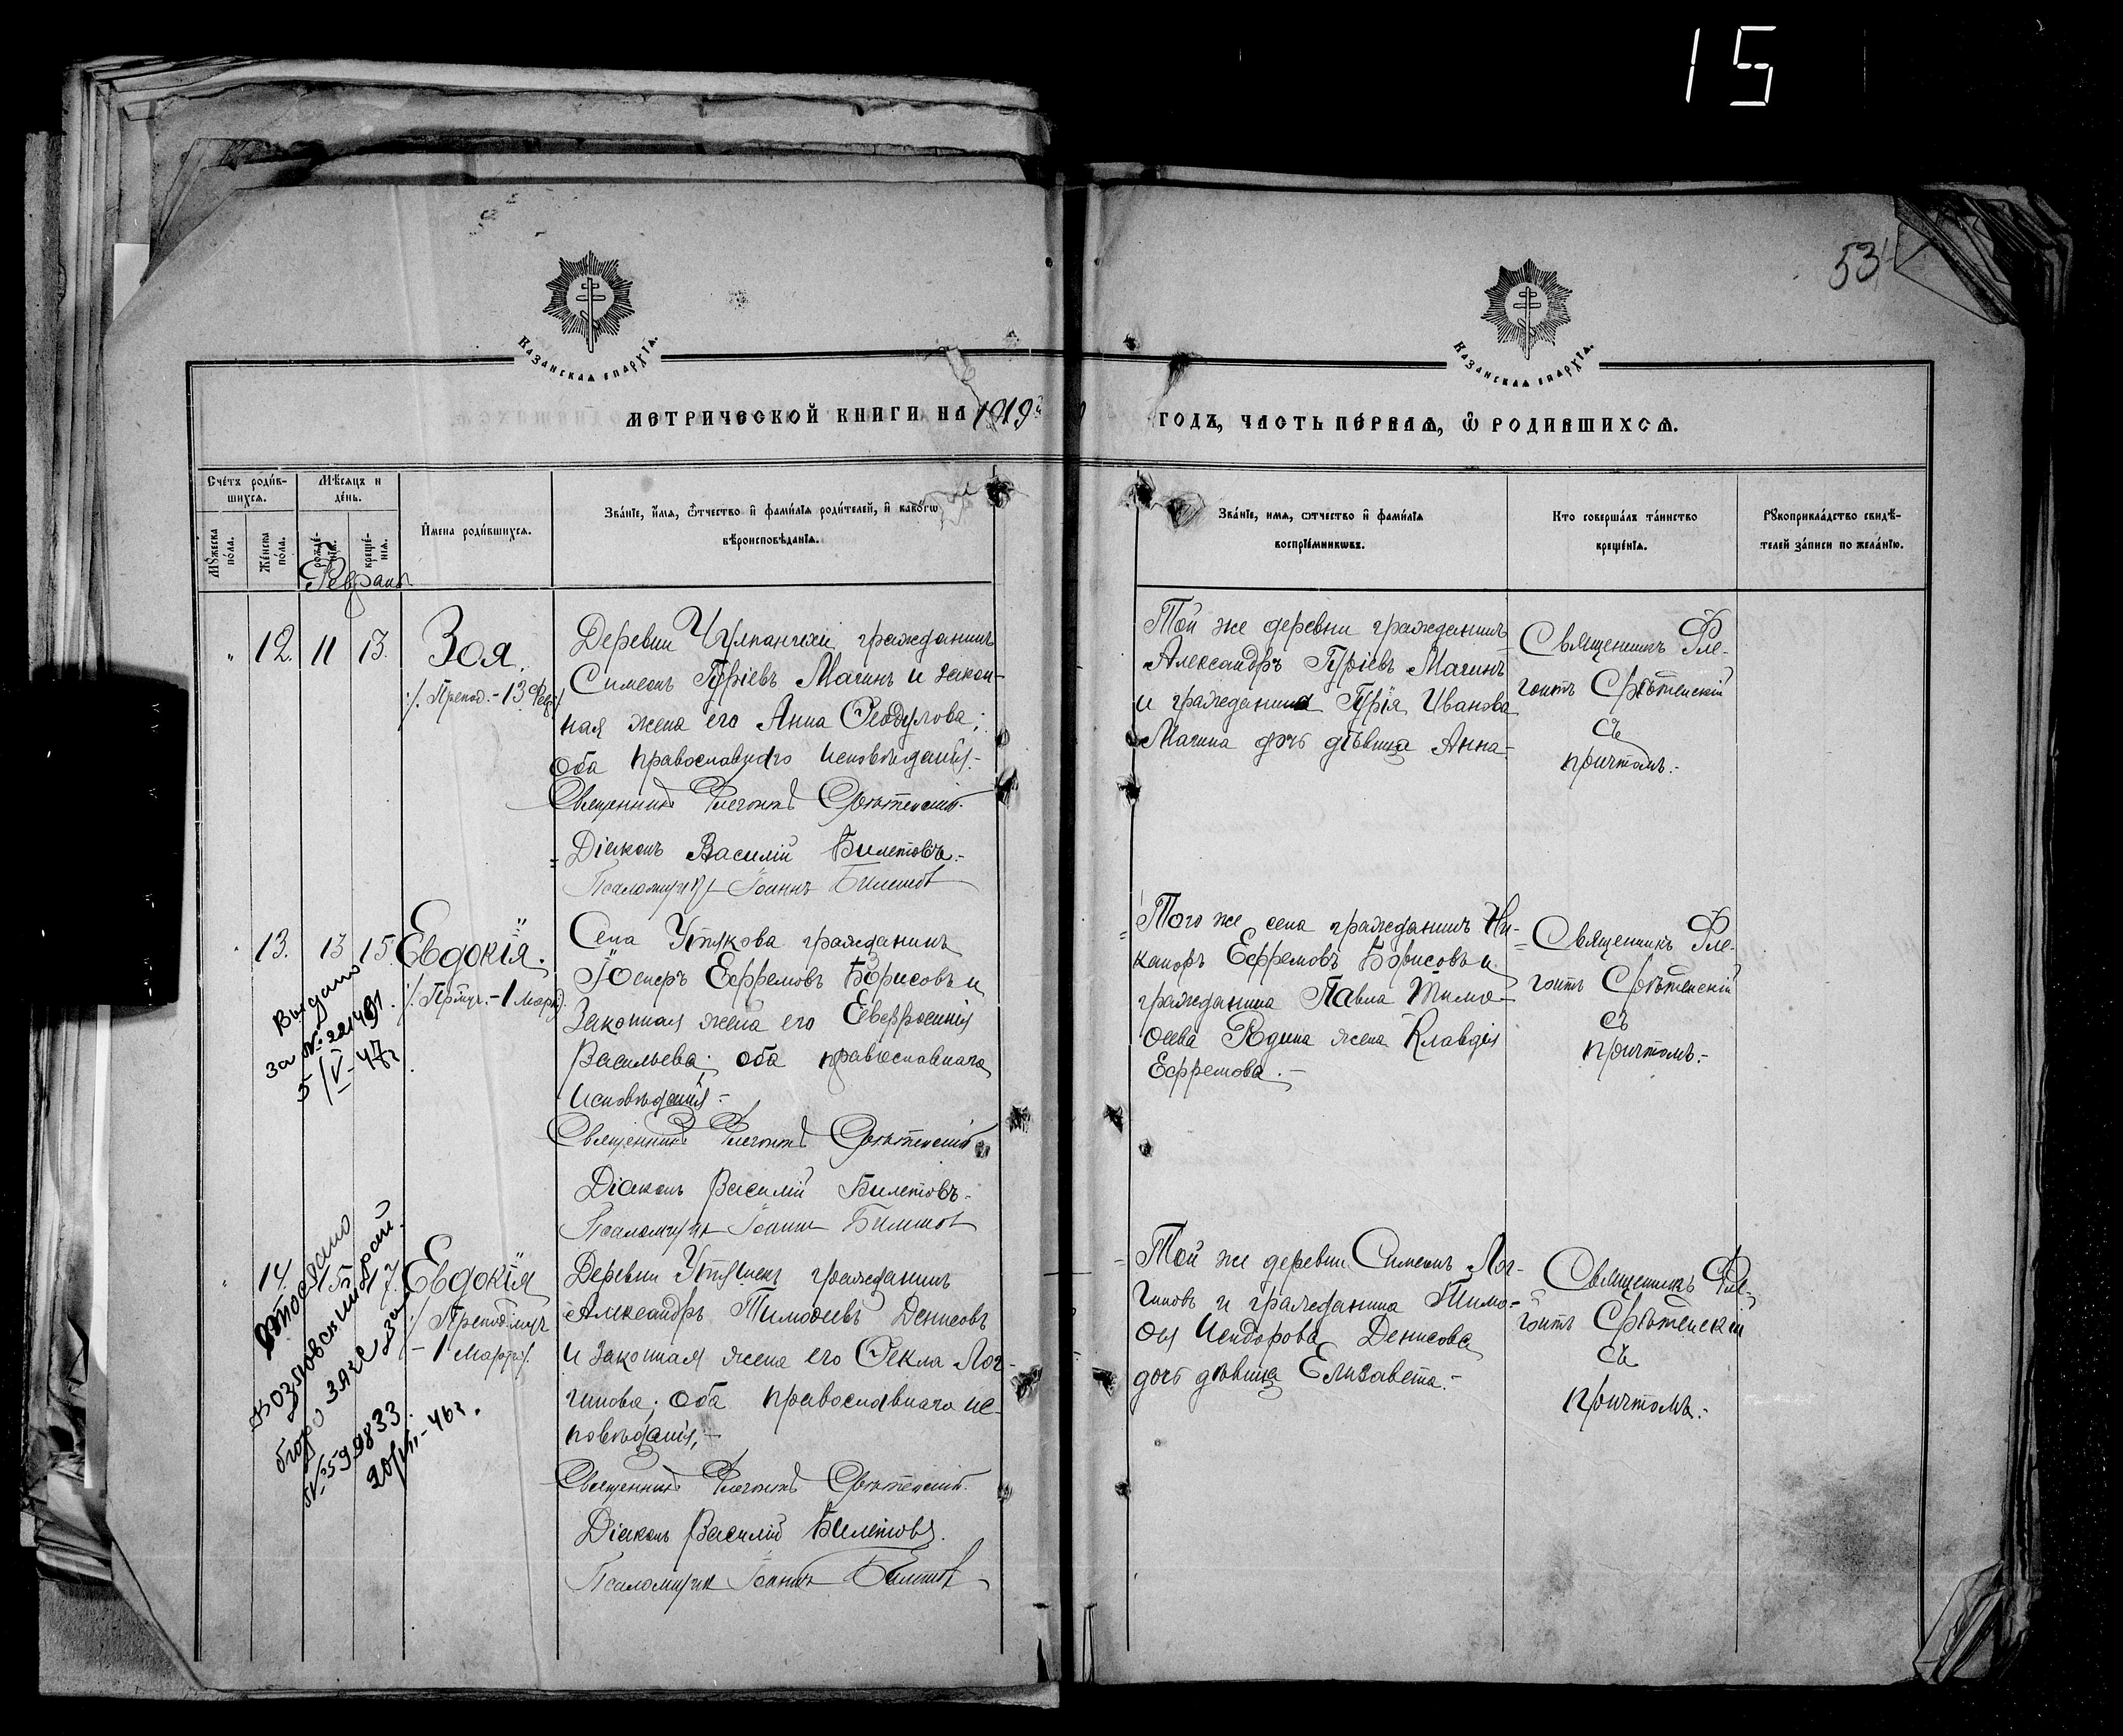 15
53
Казанская епархїя.
Казанская епархїя.
МЕТРИЧЕСКОЙ КНИГИ НА 1919й
ГОДЪ, ЧАСТЬ ПЕРВАЯ, Ѿ РОДИВШИХСЯ.
Счетъ родив-
шихся.
Мѣсяцъ и
день.
Мꙋжеска
пола.
Женска
пола.
рожде-
нїя.
креще-
нїя.
Имена родившихся.
Званїе, имя, ѿчество и фамилїя родителей, и какогѡ
вѣроисповѣданїя.
Званїе, имя, ѿчество и фамилїя
воспрїемникѡвъ.
Кто совершалъ таинство
крещенїя.
Рꙋкоприкладство свидѣ-
телей записи по желанїю.
Февраль
12. 11 13.
Зоя.
/. Препод. - 13 Фев./
Деревни гражданинъ
Симеонъ Гурiевъ Магинъ и закон-
ная жена его Анна Ѳеодулова;
оба православнаго исповѣданiя.-
Священникъ Флегонтъ Срѣтенскiй.
Дiаконъ Василiй Билетовъ.-
Псаломщикъ Iоаннъ Билетов
Той же деревни гражданинъ
Александръ Гурiевъ Магинъ
и гражданина Гурiя Иванова
Магина дочь дѣвица Анна-
Священникъ Фле-
гонтъ Срѣтенскiй
съ
причтомъ.-
13. 13 15.
Евдокiя.
/. Прмуч. - 1 Марта/
Выдано
за № 221491.
5/V-47г
Села Утякова гражданинъ
Ефремовъ Борисовъ и
законная жена его Евфросинiя
Васильева; оба православнаго
исповѣданiя-
Священникъ Флегонтъ Срѣтенскiй
Дiаконъ Василiй Билетовъ-
Псаломщик Iоанн Билетов
Того же села гражданинъ Ни-
каноръ Ефремовъ Борисовъ и
гражданина Павла Тимо-
ѳеева Юдина жена Клавдiя
Ефремова.-
Священникъ Фле-
гонтъ Срѣтенскiй
съ
причтомъ.-
14. 15 17.
Евдокiя
/. Преподмуч
- 1 Марта/.
Козловский рай.
бюро ЗАГС за
№ 599833
20/VII-46г.
Деревни гражданинъ
Александръ Тимоѳеевъ Денисовъ
и законная жена его Ѳекла Лог-
гинова; оба православнаго ис-
повѣданiя,-
Священникъ Флегонтъ Срѣтенскiй.
Дiаконъ Василiй Билетовъ.
Псаломщик Iоаннъ Билетов
Той же деревни Симеонъ Лог-
гиновъ и гражданина Тимо-
ѳея Исидорова Денисова
дочь дѣвица Елизавета.-
Священникъ Фле-
гонтъ Срѣтенскiй
съ
причтомъ.-